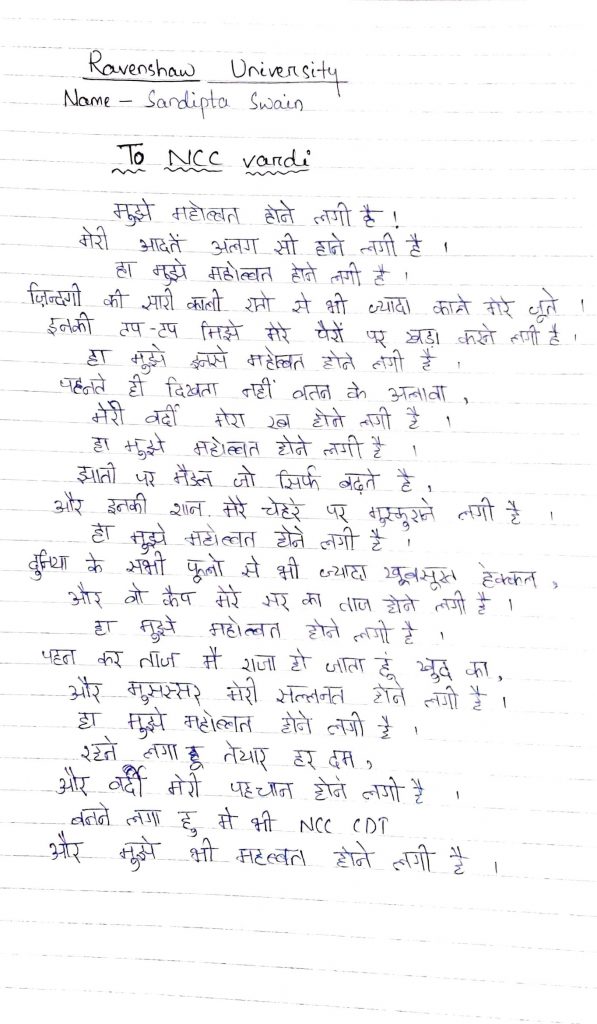 Ravenshaw University
Name - Sandipta Swain
To NCC vardi
मुझे महोब्बत होने लगी है !
मेरी आदतें अलग सी होने लगी है ।
हा मुझे महोब्बत होने लगी है ।
ज़िन्दगी की सारी काली रातो से भी ज्यादा काले मेरे जूते ।
इनकी टप-टप मिझे मेरे पैरों पर खड़ा करने लगी है ।
हा मुझे इनसे महोब्बत होने लगी है ।
पहनते ही दिखता नहीं वतन के अलावा ,
मेरी वर्दी मेरा रब होने लगी है ।
हा मुझे महोब्बत होने लगी है ।
छाती पर मैडल जो सिर्फ बढ़ते है ,
और इनकी शान मेरे चेहरे पर मुस्कुराने लगी है ।
हा मुझे महोब्बत होने लगी है ।
दुनिया के सभी फूलो से भी ज्यादा खूबसूरत हेक्कल ,
और वो कैप मेरे सर का ताज होने लगी है ।
हा मुझे महोब्बत होने लगी है ।
पहन कर ताज मै राजा हो जाता हूं खुद का ,
और मुसस्सर मेरी सल्तनत होने लगी है ।
हा मुझे महोब्बत होने लगी है ।
रहने लगा हू तेयार हर दम ,
और वर्दी मेरी पहचान होने लगी है ।
बनने लगा हु मै भी NCC CDT
और मुझे भी महब्बत होने लगी है ।